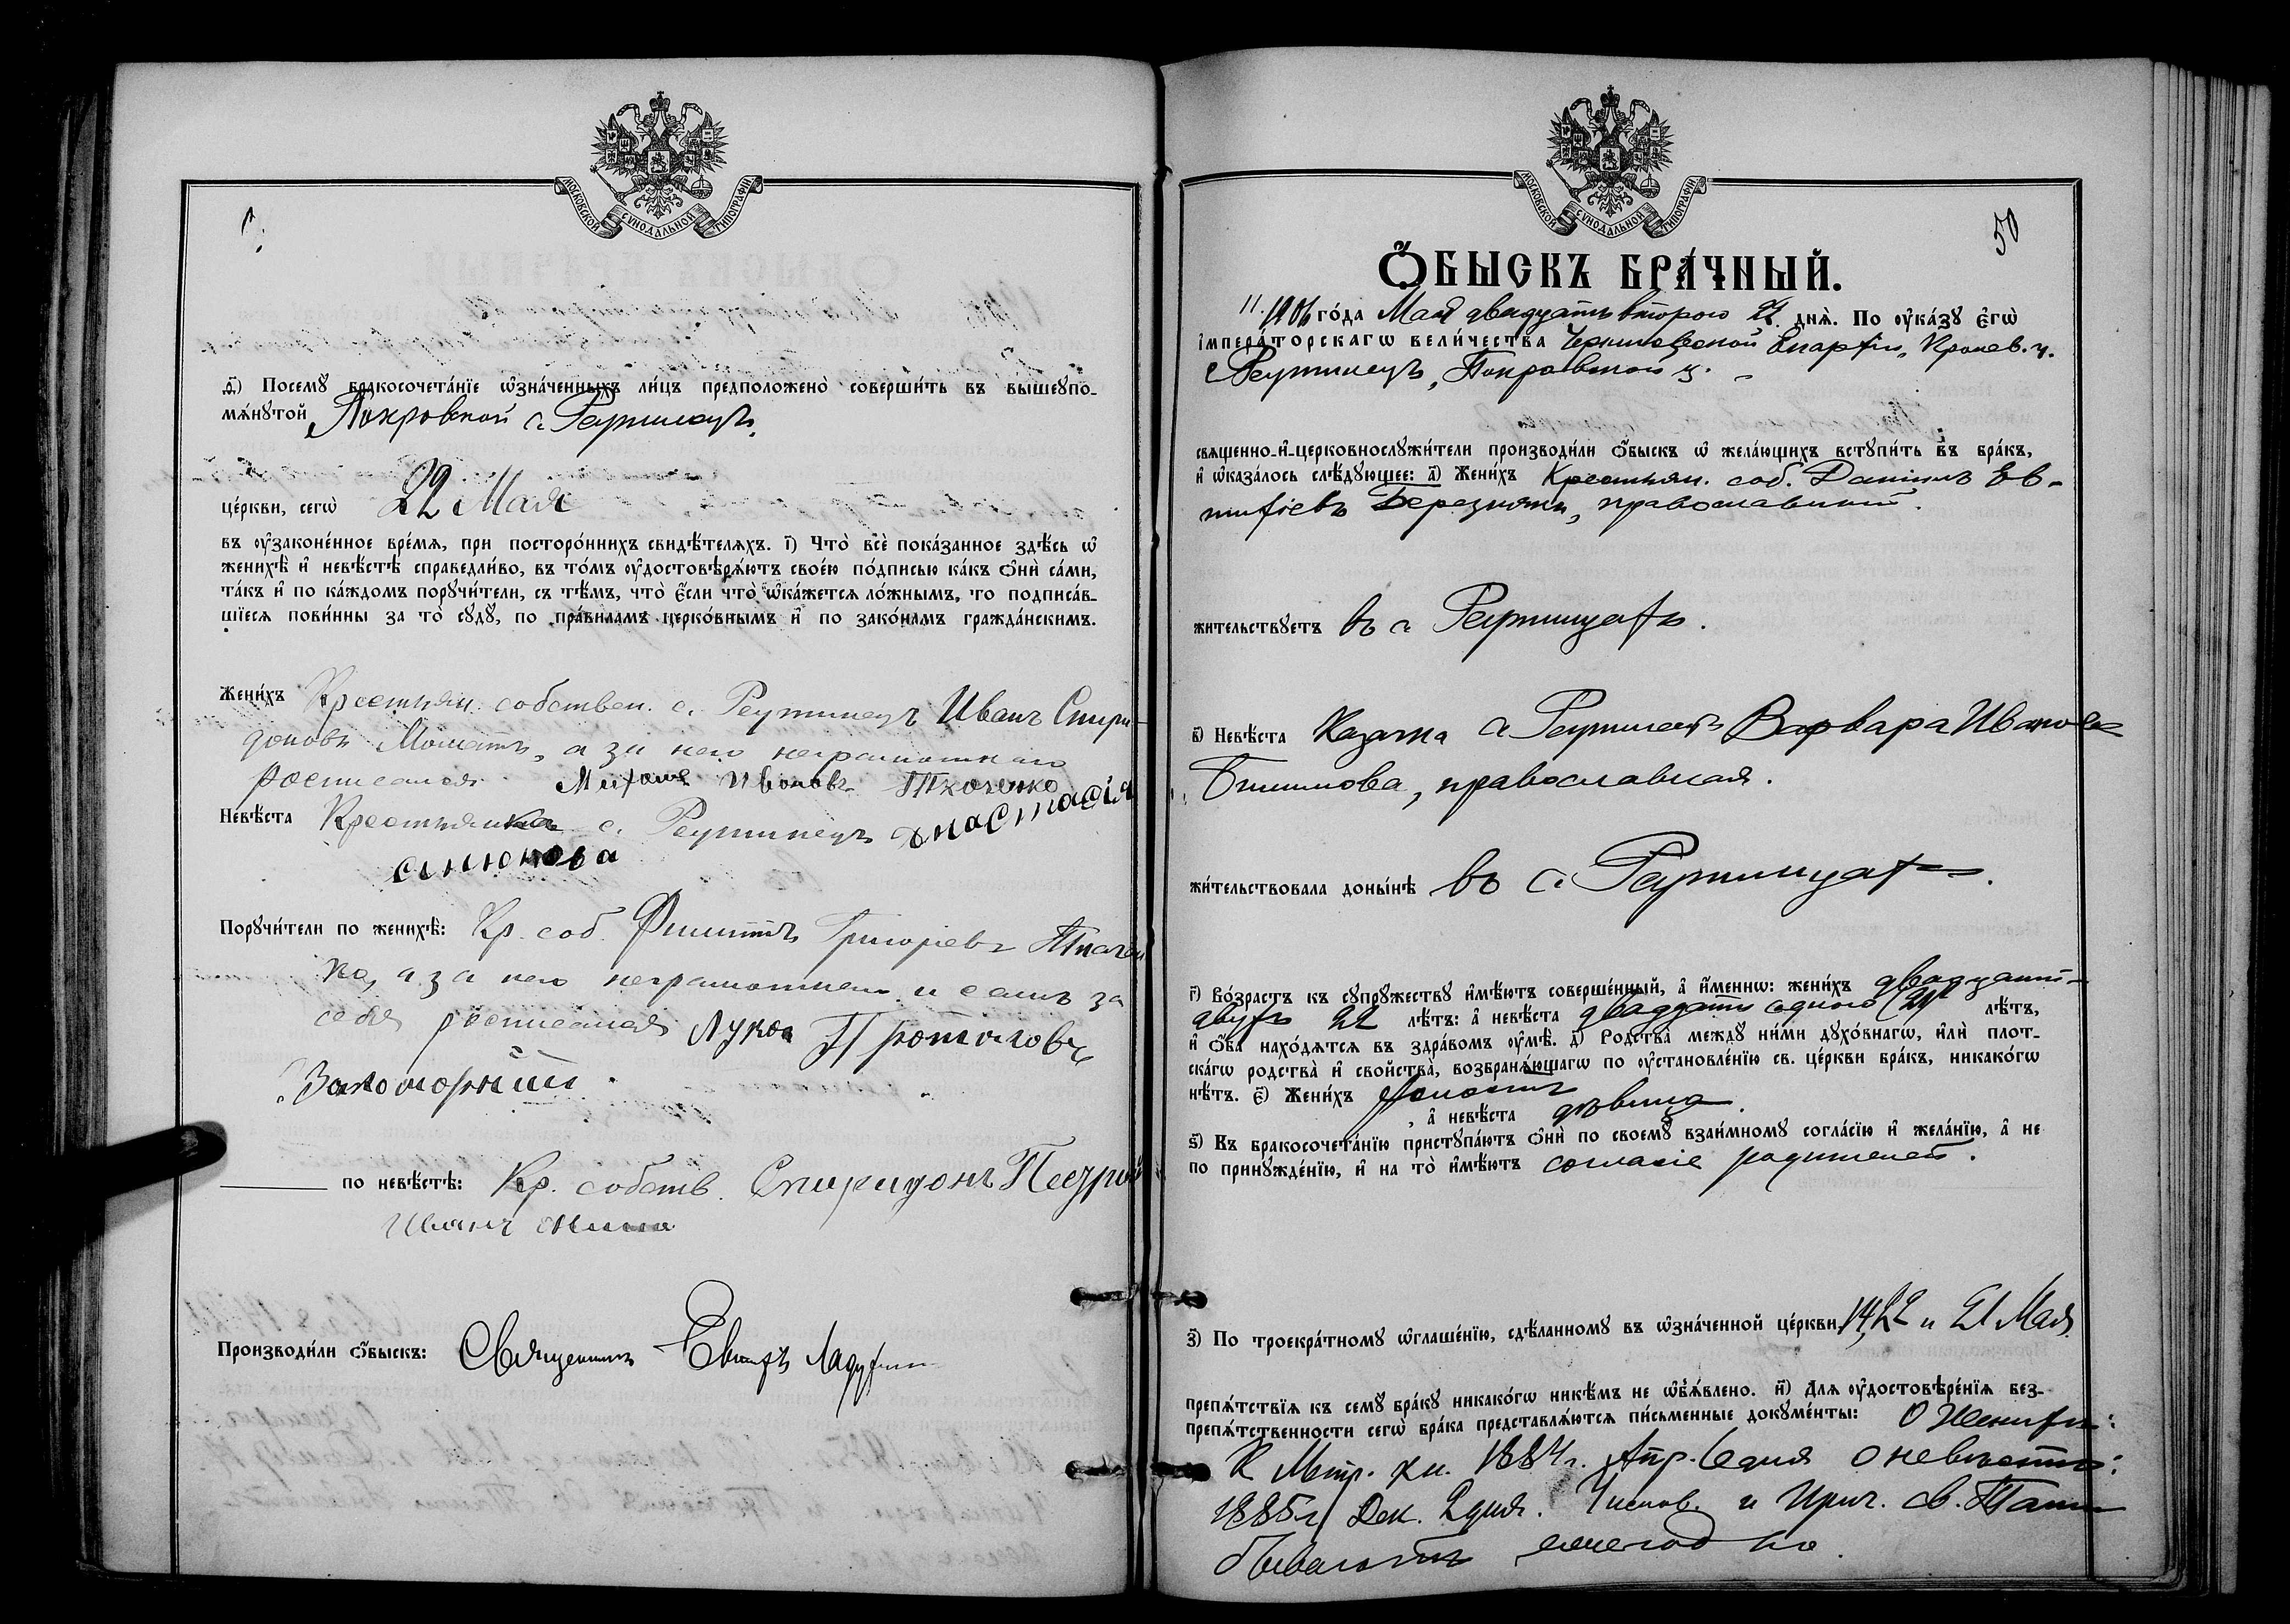 МОСКОВСКОЙ СѴНОДАЛЬНОЙ ТИПОГРАФІИ
ѳ҃) Посемꙋ̀ бракосочета́нїе ѡ҆зна́ченныхъ ли́цъ предположено̀ соверши́ть въ вышеупо-
мѧ́нутой Покровской с. Реутинецъ
це́ркви, сегѡ̀ 22 Мая
въ ᲂу҆зако́ненное вре́мѧ, при посторо́ннихъ свидѣ́телѧхъ. і҃) Что̀ всѐ пока́занное здѣ́сь ѡ҆
женихѣ̀ и҆ невѣ́стѣ справедли́во, въ то́мъ ᲂу҆достовѣрѧ́ютъ свое́ю по́дписью ка́къ ѻ҆нѝ са́ми,
та́къ и҆ по ка́ждомъ порꙋчи́тели, съ тѣ́мъ, что̀ є҆́сли что̀ ѡ҆ка́жетсѧ ло́жнымъ, то подписа́в-
шїесѧ пови́нны за то̀ сꙋдꙋ̀, по пра́виламъ церко́внымъ и҆ по зако́намъ гражда́нскимъ.
Жени́хъ Крестьян. собствен. с. Реутинецъ Иванъ Спири-
доновъ Момотъ, а за него неграмотнаго
росписался Иванов Ткаченко
Невѣ́ста Крестьянка с. Реутинецъ Анастасія
Синюкова
Порꙋчи́тели по женихѣ̀: Кр. соб. Филиппъ Григорьевъ Ткачен
ко, а за него неграмотнаго и самъ за
себя росписался Лука
по невѣ́стѣ: Кр. собств. Спиридонъ
Иванъ
Производи́ли ѻ҆́быскъ: Священникъ
МОСКОВСКОЙ СѴНОДАЛЬНОЙ ТИПОГРАФІИ
50
Ѻ҆́БЫСКЪ БРА́ЧНЫЙ.
11. 1906 го́да Мая двадцать второго 22 днѧ̀. По ᲂу҆ка́зꙋ є҆гѡ̀
і҆мпера́торскагѡ вели́чества Черниговской Епархіи, Кролев. у.
с. Реутинецъ, Покровской ц.
свѧщенно-и҆-церковнослꙋжи́тели производи́ли ѻ҆́быскъ ѡ҆ жела́ющихъ встꙋпи́ть въ бра́къ,
и҆ ѡ҆каза́лось слѣ́дꙋющее: а҃) Жени́хъ Крестьян. соб. Даніилъ Ев-
тихіевъ Березнякъ, православный.
жи́тельствꙋетъ въ с. Реутинцахъ.
в҃) Невѣ́ста Казачка с. Реутинецъ Варвара Иванова
православная.
жи́тельствовала доны́нѣ въ с. Реутинцахъ.
г҃) Во́зрастъ къ сꙋпрꙋжествꙋ и҆мѣ́ютъ соверше́нный, а҆ и҆́меннѡ: жени́хъ двадцати-
двухъ 22 лѣ́тъ: а҆ невѣ́ста двадцати одного (21) лѣ́тъ,
и҆ ѻ҆́ба нахо́дѧтсѧ въ здра́вомъ ᲂу҆мѣ̀. д҃) Родства̀ междꙋ ни́ми дꙋхо́внагѡ, и҆лѝ плот-
ска́гѡ родства̀ и҆ сво́йства, возбранѧ́ющагѡ по ᲂу҆становле́нїю св. це́ркви бра́къ, никако́гѡ
нѣ́тъ. є҃) Жени́хъ холостъ
, а҆ невѣ́ста дѣвица
ѕ҃) Къ бракосочета́нїю пристꙋпа́ютъ ѻ҆нѝ по своемꙋ̀ взаи́мномꙋ согла́сїю и҆ жела́нїю, а҆ не
по принꙋжде́нїю, и҆ на то̀ и҆мѣ́ютъ согласіе родителей.
з҃) По троекра́тномꙋ ѡ҆глаше́нїю, сдѣ́ланномꙋ въ ѡ҆зна́ченной це́ркви 14, 22 и 21 Мая
препѧ́тствїѧ къ семꙋ̀ бра́кꙋ никако́гѡ никѣ́мъ не ѡ҆б̾ѧ́влено. и҃) Длѧ ᲂу҆достовѣре́нїѧ без-
препѧ́тственности сегѡ̀ бра́ка представлѧ́ютсѧ пи́сьменные докꙋме́нты: О женихѣ:
К Метр. кн. 1884 г. Апр. 6 дня о невѣстѣ:
1885 г. Дек. 2 дня. Исповѣд. и Прич. Св. Таин
бываютъ ежегодно.